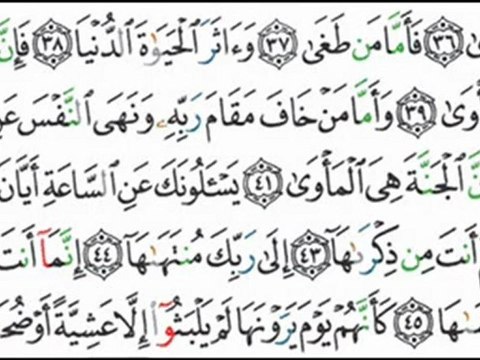 ىٰ ﴿٣٦﴾ فَأَمَّا مَن طَغَىٰ ﴿٣٧﴾ وَءَاثَرَ ٱلْحَيَوٰةَ ٱلدُّنْيَا ﴿٣٨﴾ فَإِنَّ
أْوَىٰ ﴿٣٩﴾ وَأَمَّا مَنْ خَافَ مَقَامَ رَبِّهِۦ وَنَهَى ٱلنَّفْسَ عَنِ
نَّ ٱلْجَنَّةَ هِىَ ٱلْمَأْوَىٰ ﴿٤١﴾ يَسْـَٔلُونَكَ عَنِ ٱلسَّاعَةِ أَيَّانَ
أَنتَ مِن ذِكْرَىٰهَآ ﴿٤٣﴾ إِلَىٰ رَبِّكَ مُنتَهَىٰهَآ ﴿٤٤﴾ إِنَّمَآ أَنتَ
ىٰهَا ﴿٤٥﴾ كَأَنَّهُمْ يَوْمَ يَرَوْنَهَا لَمْ يَلْبَثُوٓا۟ إِلَّا عَشِيَّةً أَوْ ضُحَ